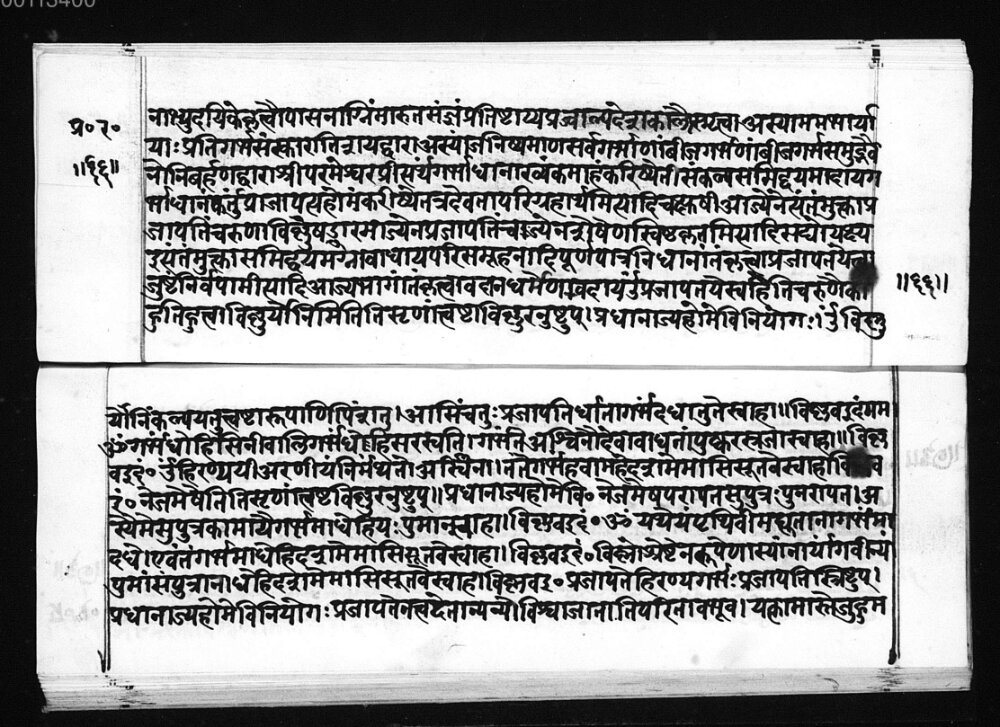 00113400
प्र॰र॰
॥६६॥
नाभ्युदयिकेकृत्वौपासनाग्निंमारुतसंज्ञंप्रतिष्टाप्यप्रज्वाल्य अस्याममभार्या
याःप्रतिगर्भसंस्कारातिशयद्वाराअस्यांजनिष्यमाणसर्वगर्भाणांबीजगर्भसमुद्भवै
नोनिबर्हणद्वाराश्रीपरमेश्वरप्रीत्यर्थंगर्भाधानाख्यंकर्माहंकरिष्येति।संकल्प्यसमिद्द्वयमादायग
र्भाधानंकर्तुंप्राजापत्यहोमंकरिष्येतत्रदेवतापरिग्रहार्थमित्यादिचक्षुषीआज्येनेत्यंतमुक्त्वाप्र
जापतिंचरुणाविष्णुंषड्वारमाज्येनप्रजापतिंचआज्येनशेषेणस्विष्टकृतमित्यादिसद्योयक्ष्य
इत्यंतमुक्त्वासमिद्द्वयमग्नावाधायपरिसमूहनादिपूर्णपात्रनिधानांतंकृत्वाप्रजापतयेत्वा
जुष्टंनिर्वपामीत्यादिआज्यभागांतंकृत्वाअवदानधर्मेणावदायॐप्रजापतयेस्वाहेतिचरुणैका
॥६६॥
हुतिंहुत्वाविष्णुर्योनिमितितिसृणांत्वष्टाविष्णुरनुष्टुप्।प्रधानाज्यहोमेविनियोगः।ॐविष्णु
र्योनिंकल्पयतुत्वष्टारूपाणिपिंशतु।आसिंचतुःप्रजापतिर्धातागर्भंदधातुतेस्वाहा॥विष्णवइदंनमम
ॐगर्भंधेहिसिनीवालिगर्भंधेहिसरस्वति।गर्भंतेअश्विनौदेवावाधत्तांपुष्करस्रजास्वाहा॥विष्णु
वइदं॰ॐहिरण्ययीअरणीयंनिर्मंथतोअश्विना।तंतेगर्भंहवामहेदशमेमासिसूतवेस्वाहाविष्णव
दं॰नेजमेषेतितिसृणांत्वष्टाविष्णुरनुष्टुप्॥प्रधानाज्यहोमेवि॰नेजमेषपरापतसुपुत्रःपुनरापत।अ
स्यैमेसुपुत्रकामायैगर्भमाधेहियःपुमान्स्वाहा।विष्णवइदं॰ॐयथेयंपृथिवीमह्युत्तानागर्भमा
दधे।एवंतंगर्भमाधेहिदशमेमासिसूतवेस्वाहा।विष्णवइदं॰विष्णोःश्रेष्ठेनरूपेणास्यांनार्यांगवीन्यां
पुमांसंपुत्रानाधेहिदशमेमासिसूतवेस्वाहाविष्णवइ॰प्रजापतेहिरण्यगर्भःप्रजापतिस्त्रिष्टुप्।
प्रधानाज्यहोमेविनियोगःप्रजापतेनत्वदेतान्यन्यो।विश्वाजातानिपरिताबभूव।यत्कामास्तेजुहुम